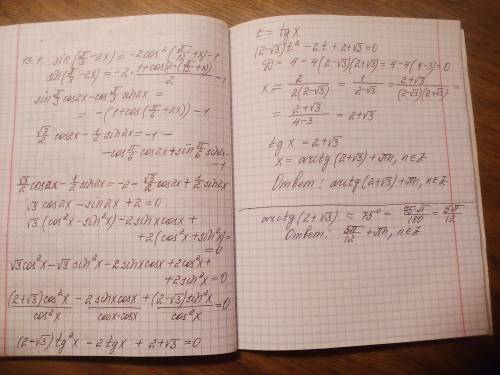 13.1 sin(π/3-2x)=-2cos²(π/12+x)-1
sin(π/3-2x)=-2·(1+cos(2·(π/12+x)))/2-1
sin π/3 cos2x-cos π/3 sin2x=
=-(1+cos(π/6+2x))-1
√3/2 cos2x-1/2 sin2x=-1-
-cos π/6 cos2x+sin π/6 sin2x-
-1
√3/2 cos2x-1/2 sin2x=-2-√3/2 cos2x+1/2 sin2x
√3 cos2x-sin2x+2=0
√3(cos²x-sin²x)-2sinxcosx+
+2(cos²x+sin²x)=
=0
√3cos²x-√3sin²x-2sinxcosx+2cos²x+
+2sin²x=0
(2+√3)cos²x/cos²x-2sinxcosx/cosx·cosx+(2-√3)sin²x/cos²x=0
(2-√3)tg²x-2tgx+2+√3=0
t=tgx
(2-√3)t²-2t+2+√3=0
D=4-4(2-√3)(2+√3)=4-4(4-3)=0
x=2/2(2-√3)=1/2-√3=2+√3/(2-√3)(2+√3)=
=2+√3/4-3=2+√3
tgx=2+√3
x=arctg(2+√3)+πn, n∈Z
Ответ: arctg(2+√3)+πn, n∈Z
arctg(2+√3)≈75°=75·π/180=5π/12
Ответ: 5π/12+πn, n∈Z